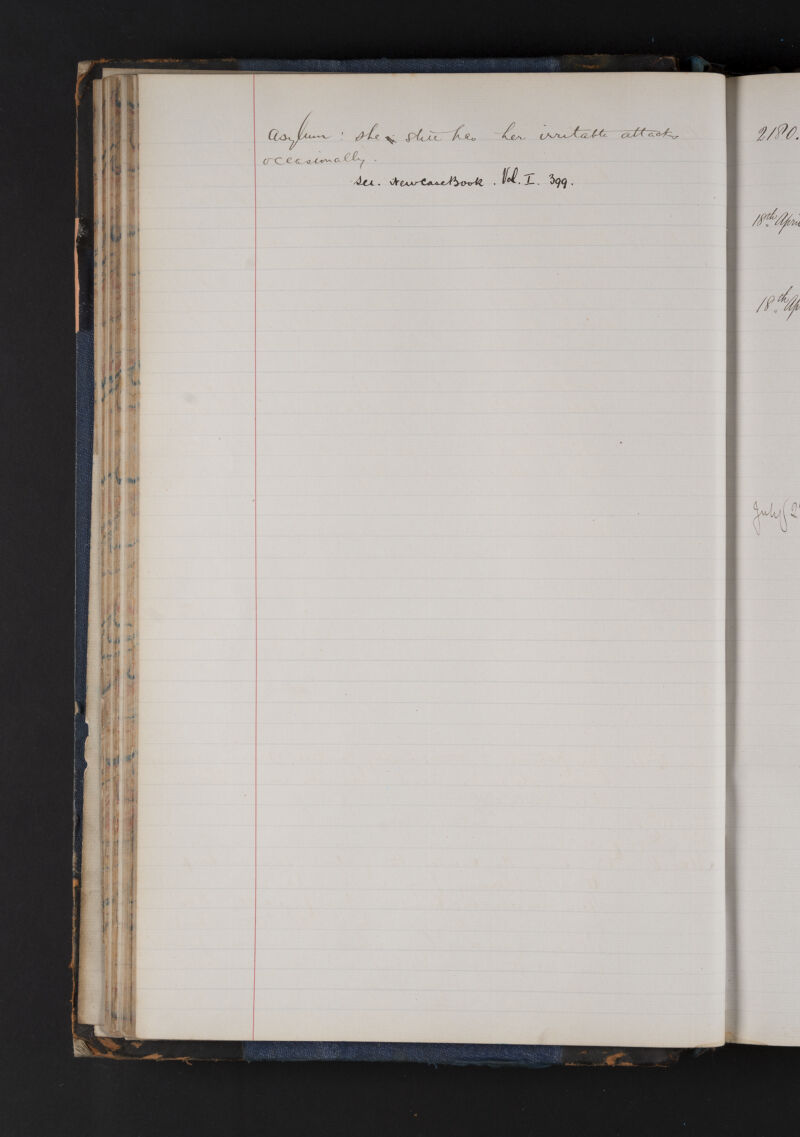 Asylum : she still has her irritable attacks
occasionally.
See. New Case Book. Vol. I. 399.
2180.
18th Apri
18th Ap
July 2